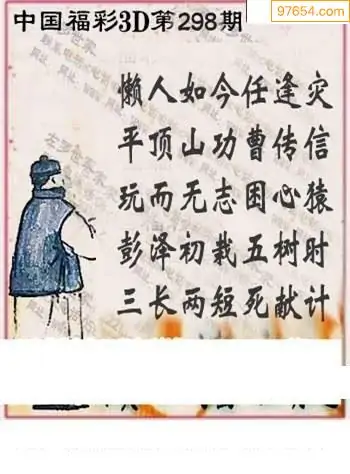 97654.com
中国福彩3D第298期
懒人如今任逢灾
平顶山功曹传信
玩而无志困心猿
彭泽初栽五树时
三长两短死献计